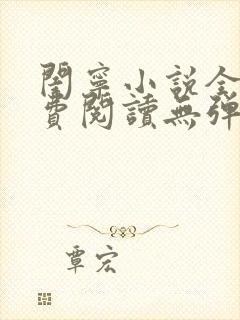 閨寧小說全
費閱讀無彈
覃宏